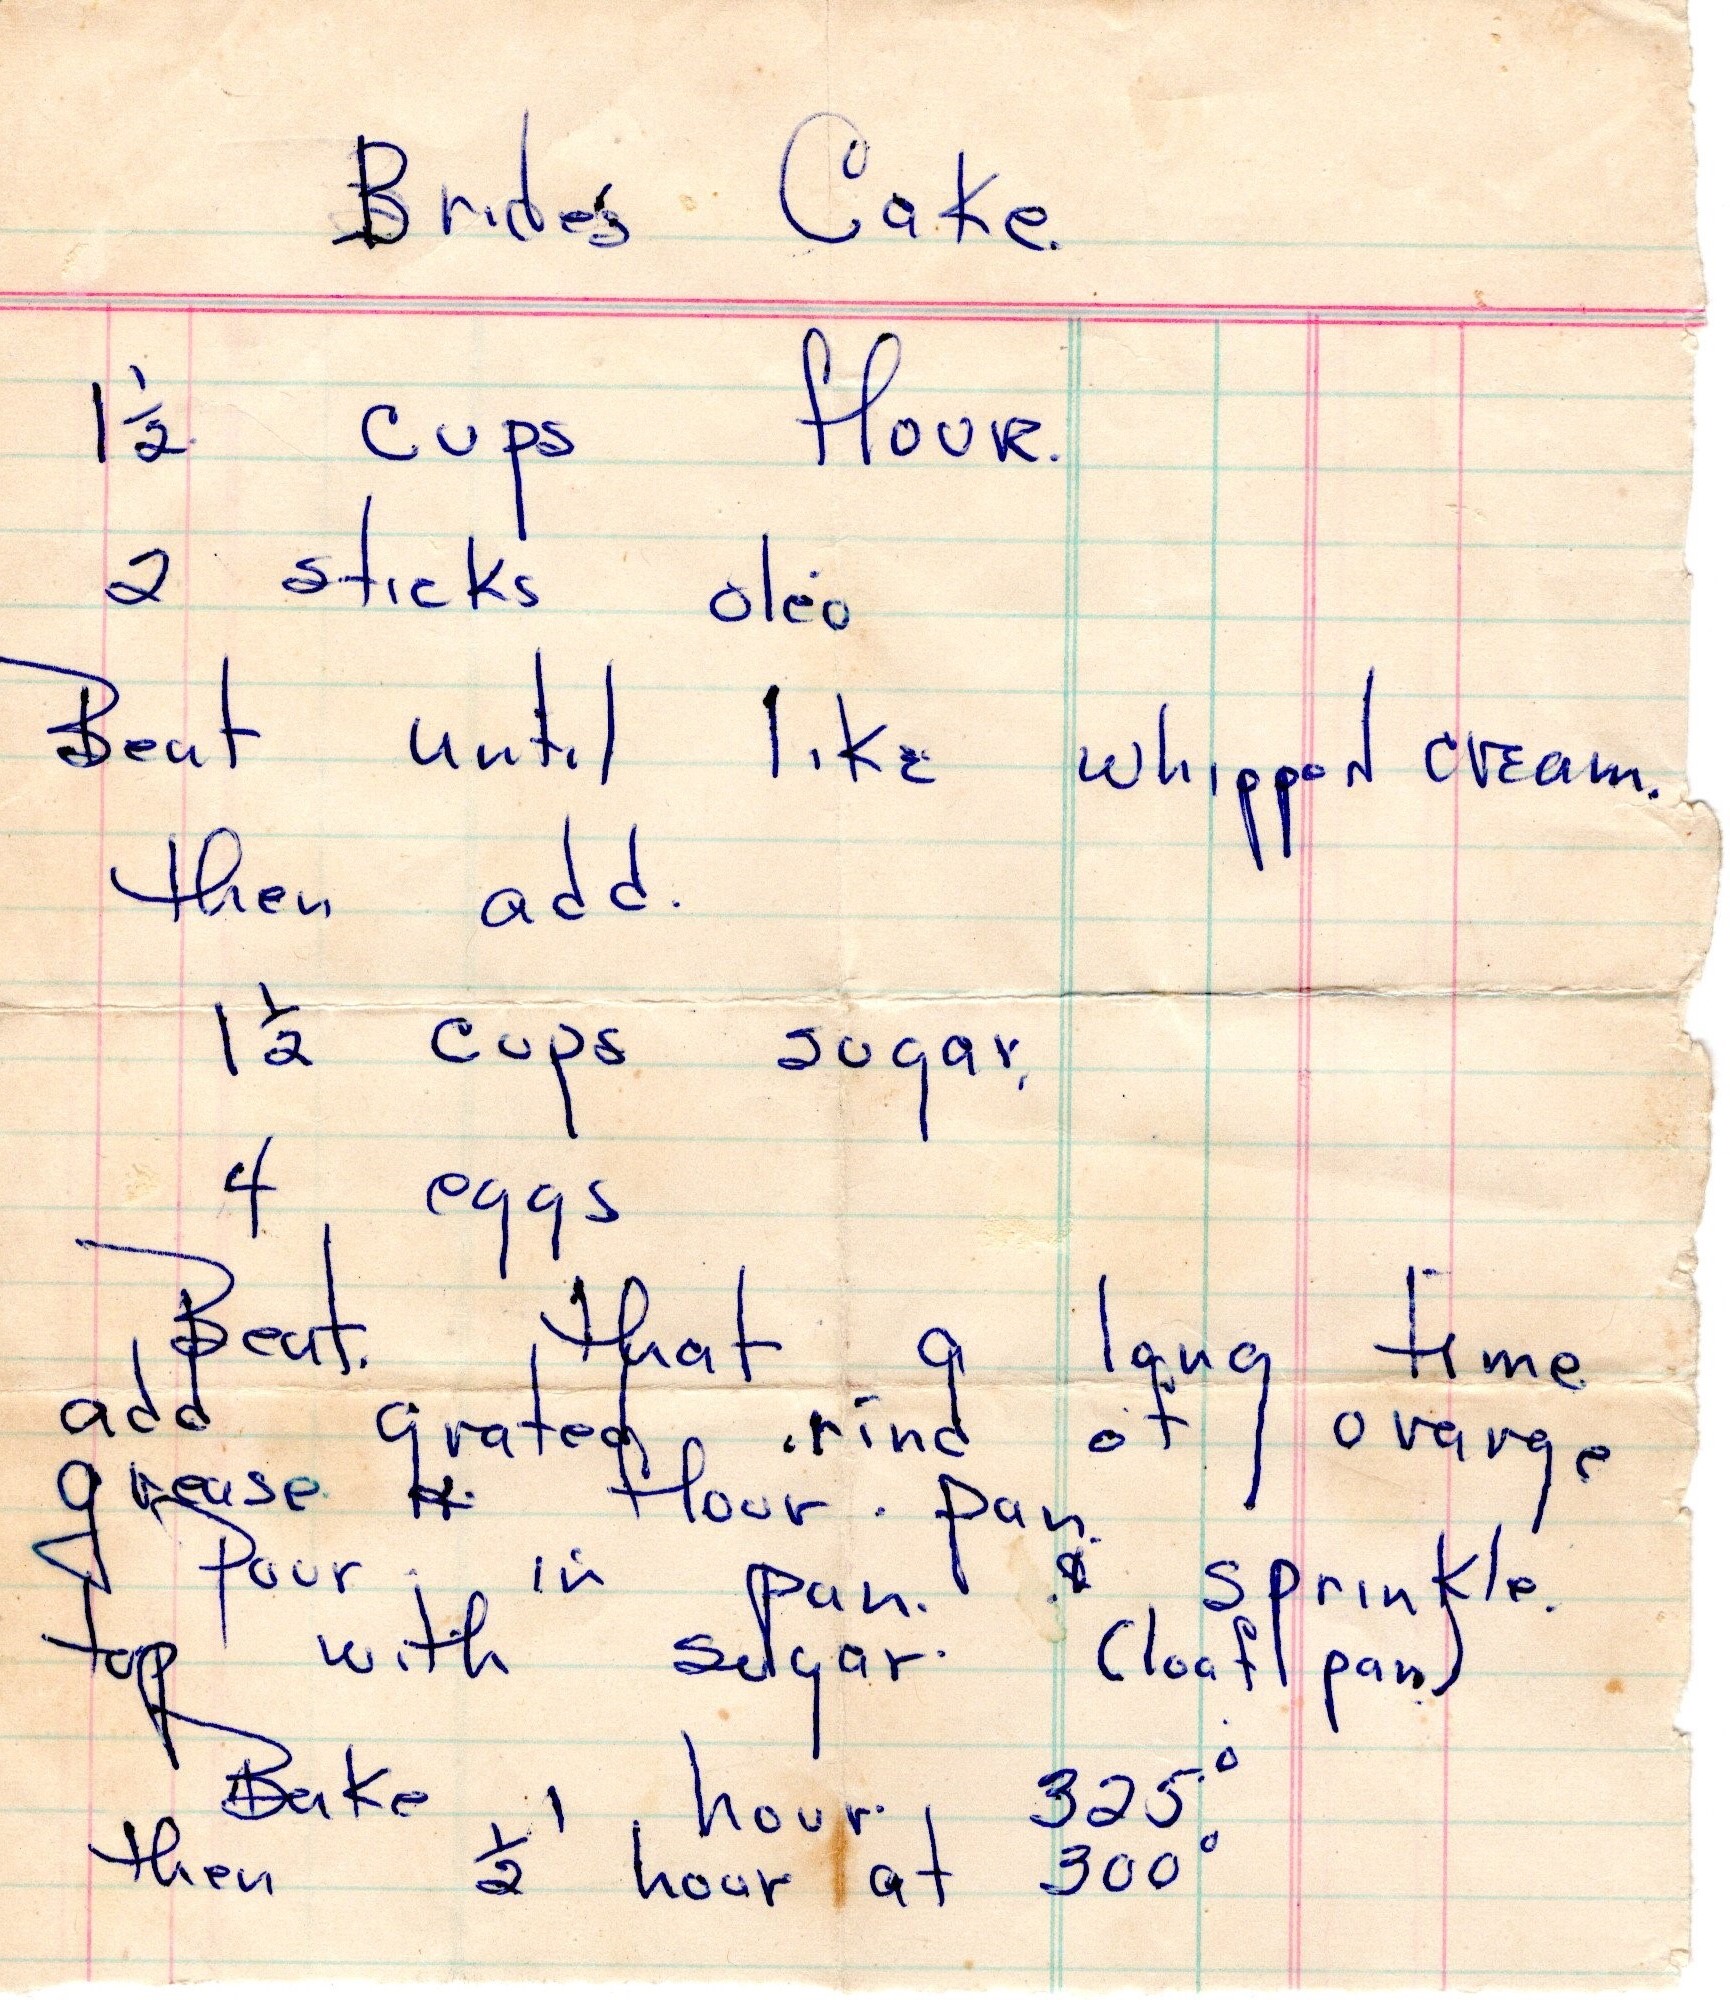 Bride's Cake.
1½ cups flour.
2 sticks oleo
Beat until like whipped cream.
then add.
1½ cups sugar,
4 eggs
Beat. that a long time
add grated rind of orange
grease & flour. pan.
Pour in pan. & sprinkle.
top with sugar. (loaf pan)
Bake 1 hour. 325°
then ½ hour at 300°